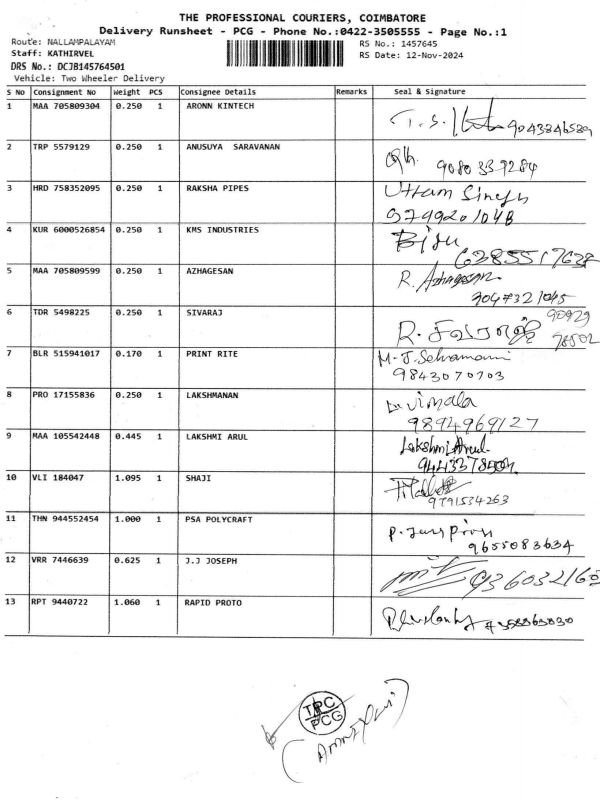 THE PROFESSIONAL COURIERS, COIMBATORE
Delivery Runsheet - PCG - Phone No.:0422-3505555 - Page No.:1
Route: NALLAMPALAYAM
RS No.: 1457645
Staff: KATHIRVEL
RS Date: 12-Nov-2024
DRS No.: DCJB145764501
Vehicle: Two Wheeler Delivery
S No Consignment No Weight PCS Consignee Details Remarks Seal & Signature
1 MAA 705809304 0.250 1 ARONN KINTECH
2 TRP 5579129 0.250 1 ANUSUYA SARAVANAN
9080339284
3 HRD 758352095 0.250 1 RAKSHA PIPES Uttam Singh
4 KUR 6000526854 0.250 1 KMS INDUSTRIES
5 MAA 705809599 0.250 1 AZHAGESAN R. Azhagesan
6 TDR 5498225 0.250 1 SIVARAJ
7 BLR 515941017 0.170 1 PRINT RITE
9843070703
8 PRO 17155836 0.250 1 LAKSHMANAN
9894969127
9 MAA 105542448 0.445 1 LAKSHMI ARUL Lakshmi Arul
10 VLI 184047 1.095 1 SHAJI
9791534263
11 THN 944552454 1.000 1 PSA POLYCRAFT
9655083634
12 VRR 7446639 0.625 1 J.J JOSEPH
13 RPT 9440722 1.060 1 RAPID PROTO
TPC
PCG